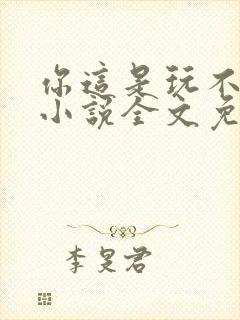 你這是玩不
小說全文免
李旻君